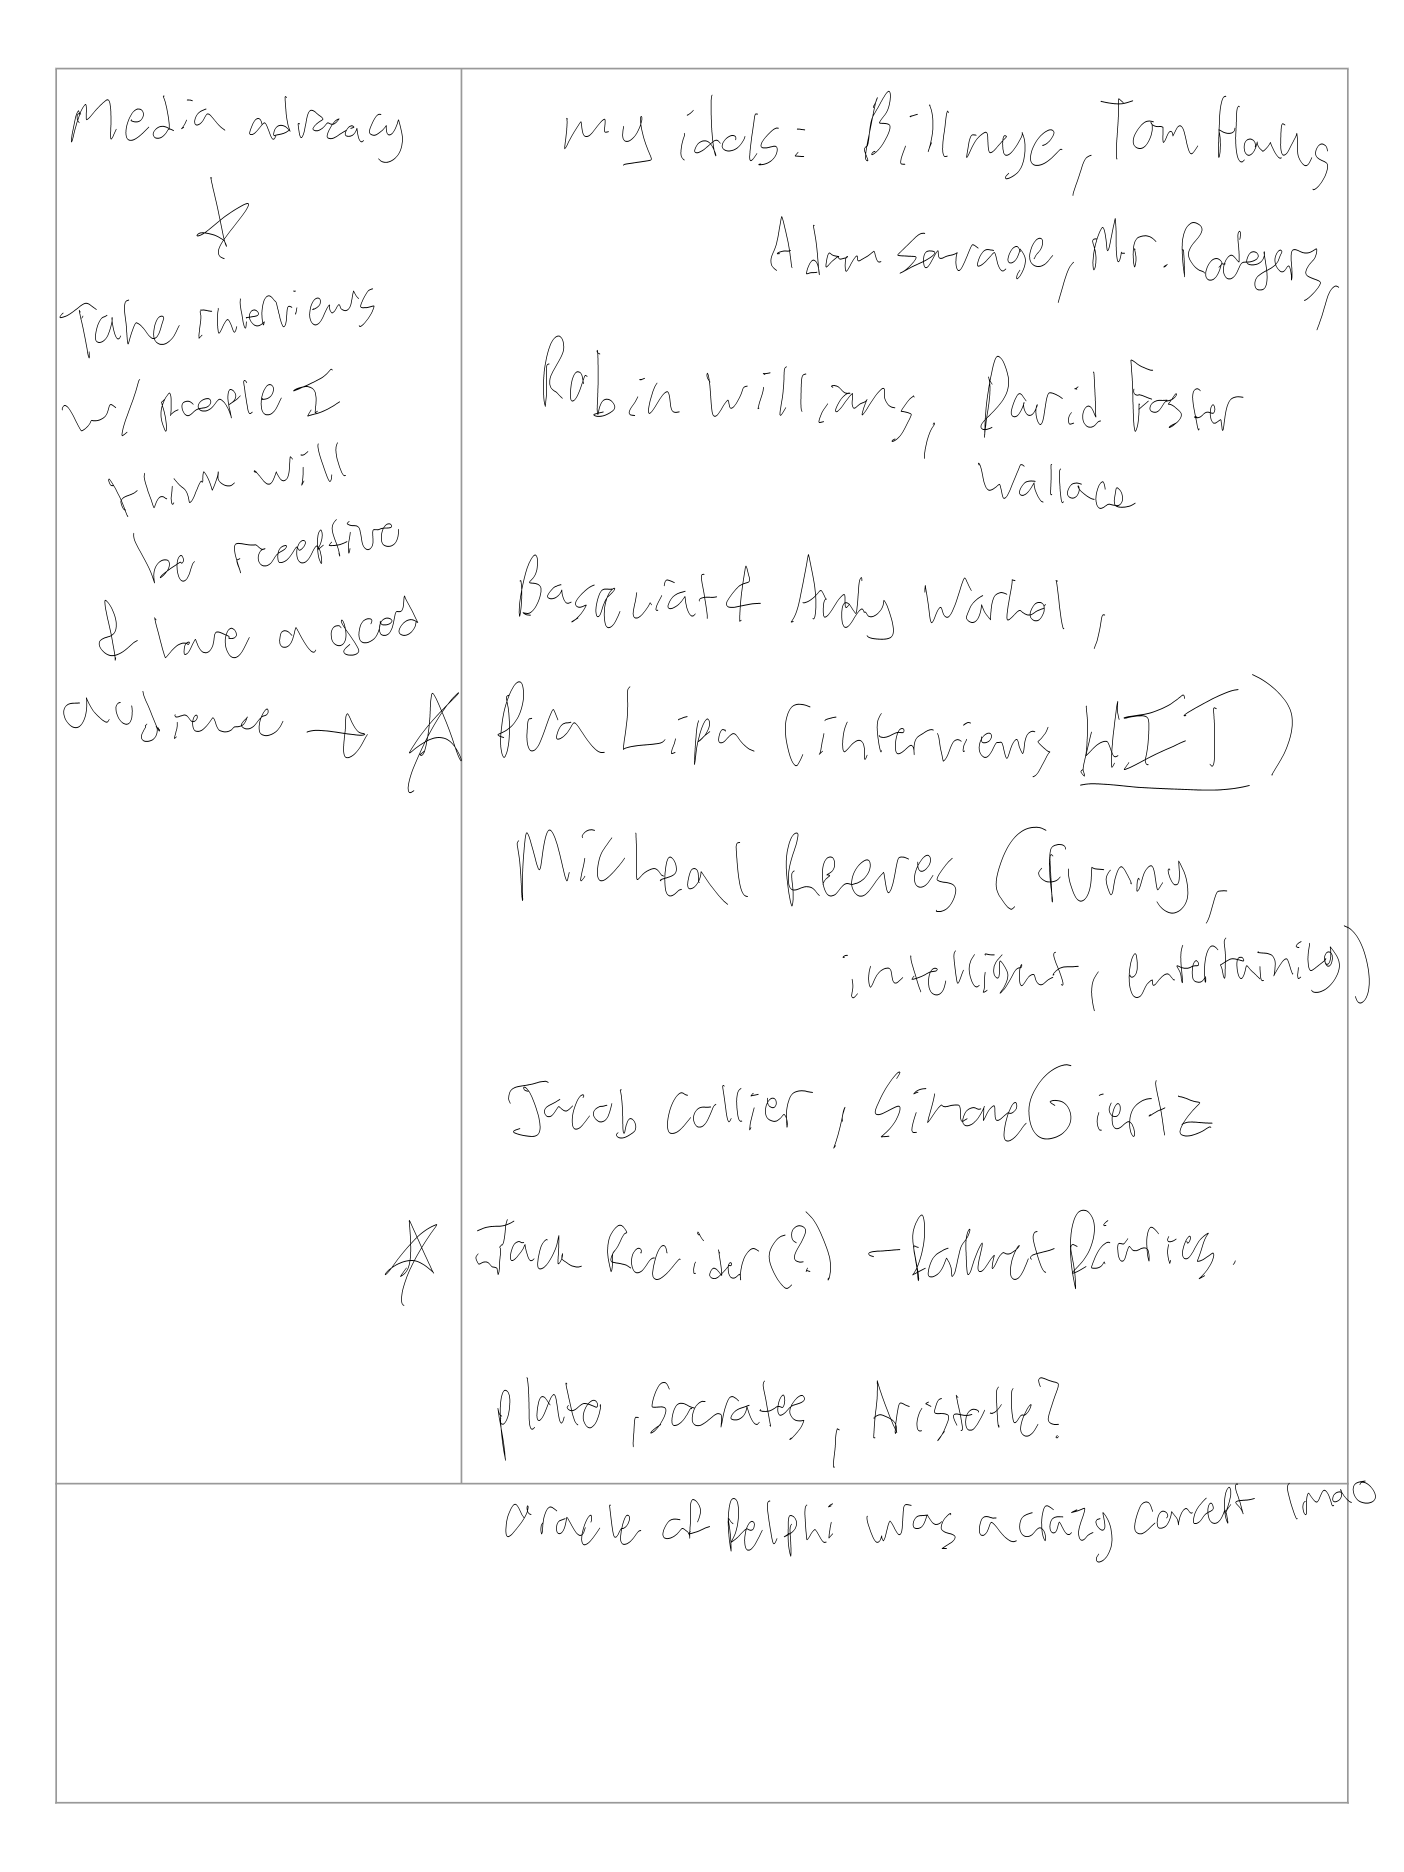 Media advocacy
Take interviews
w/ people I
think will
be receptive
& have a good
audience →
my idols: Bill nye, Tom Hanks
Adam Savage, Mr. Rodgers,
Robin Williams, David Foster
Wallace
Basquiat & Andy Warhol,
Dua Lipa (interviews HIT)
Micheal Reeves (funny,
intelligent, entertaining)
Jacob Collier, Simone Giertz
Jack Recider(?) - Darknet Diaries.
plato, Socrates, Aristotle?
oracle of Delphi was a crazy concept lmao